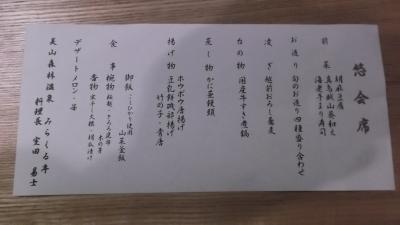 悠会席
前菜 胡麻豆腐
真鳥賊山葵和え
海老手まり寿司
お造り 旬のお造り四種盛り合わせ
凌ぎ 越前おろし蕎麦
台の物 国産牛すき煮鍋
蒸し物 かに茶碗蒸
揚げ物 ホウボウ唐揚げ
豆乳餅磯部揚げ
竹の子・青唐
食事 御飯 こしひかり使用
山菜釜飯
椀物
木の芽
香物
デザート メロン・苺
美山森林温泉 みらくる亭
料理長 室田 易士